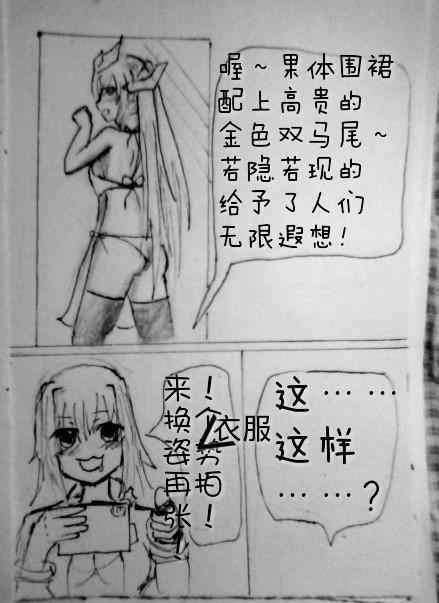 喔～果体围裙
配上高贵的
金色双马尾～
若隐若现的
给予了人们
无限遐想！
来！
换个
衣服
姿势
再拍
张！
！
这……
这样
……？